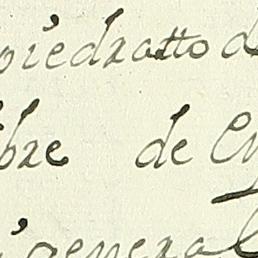 piedratto d
bre de
general